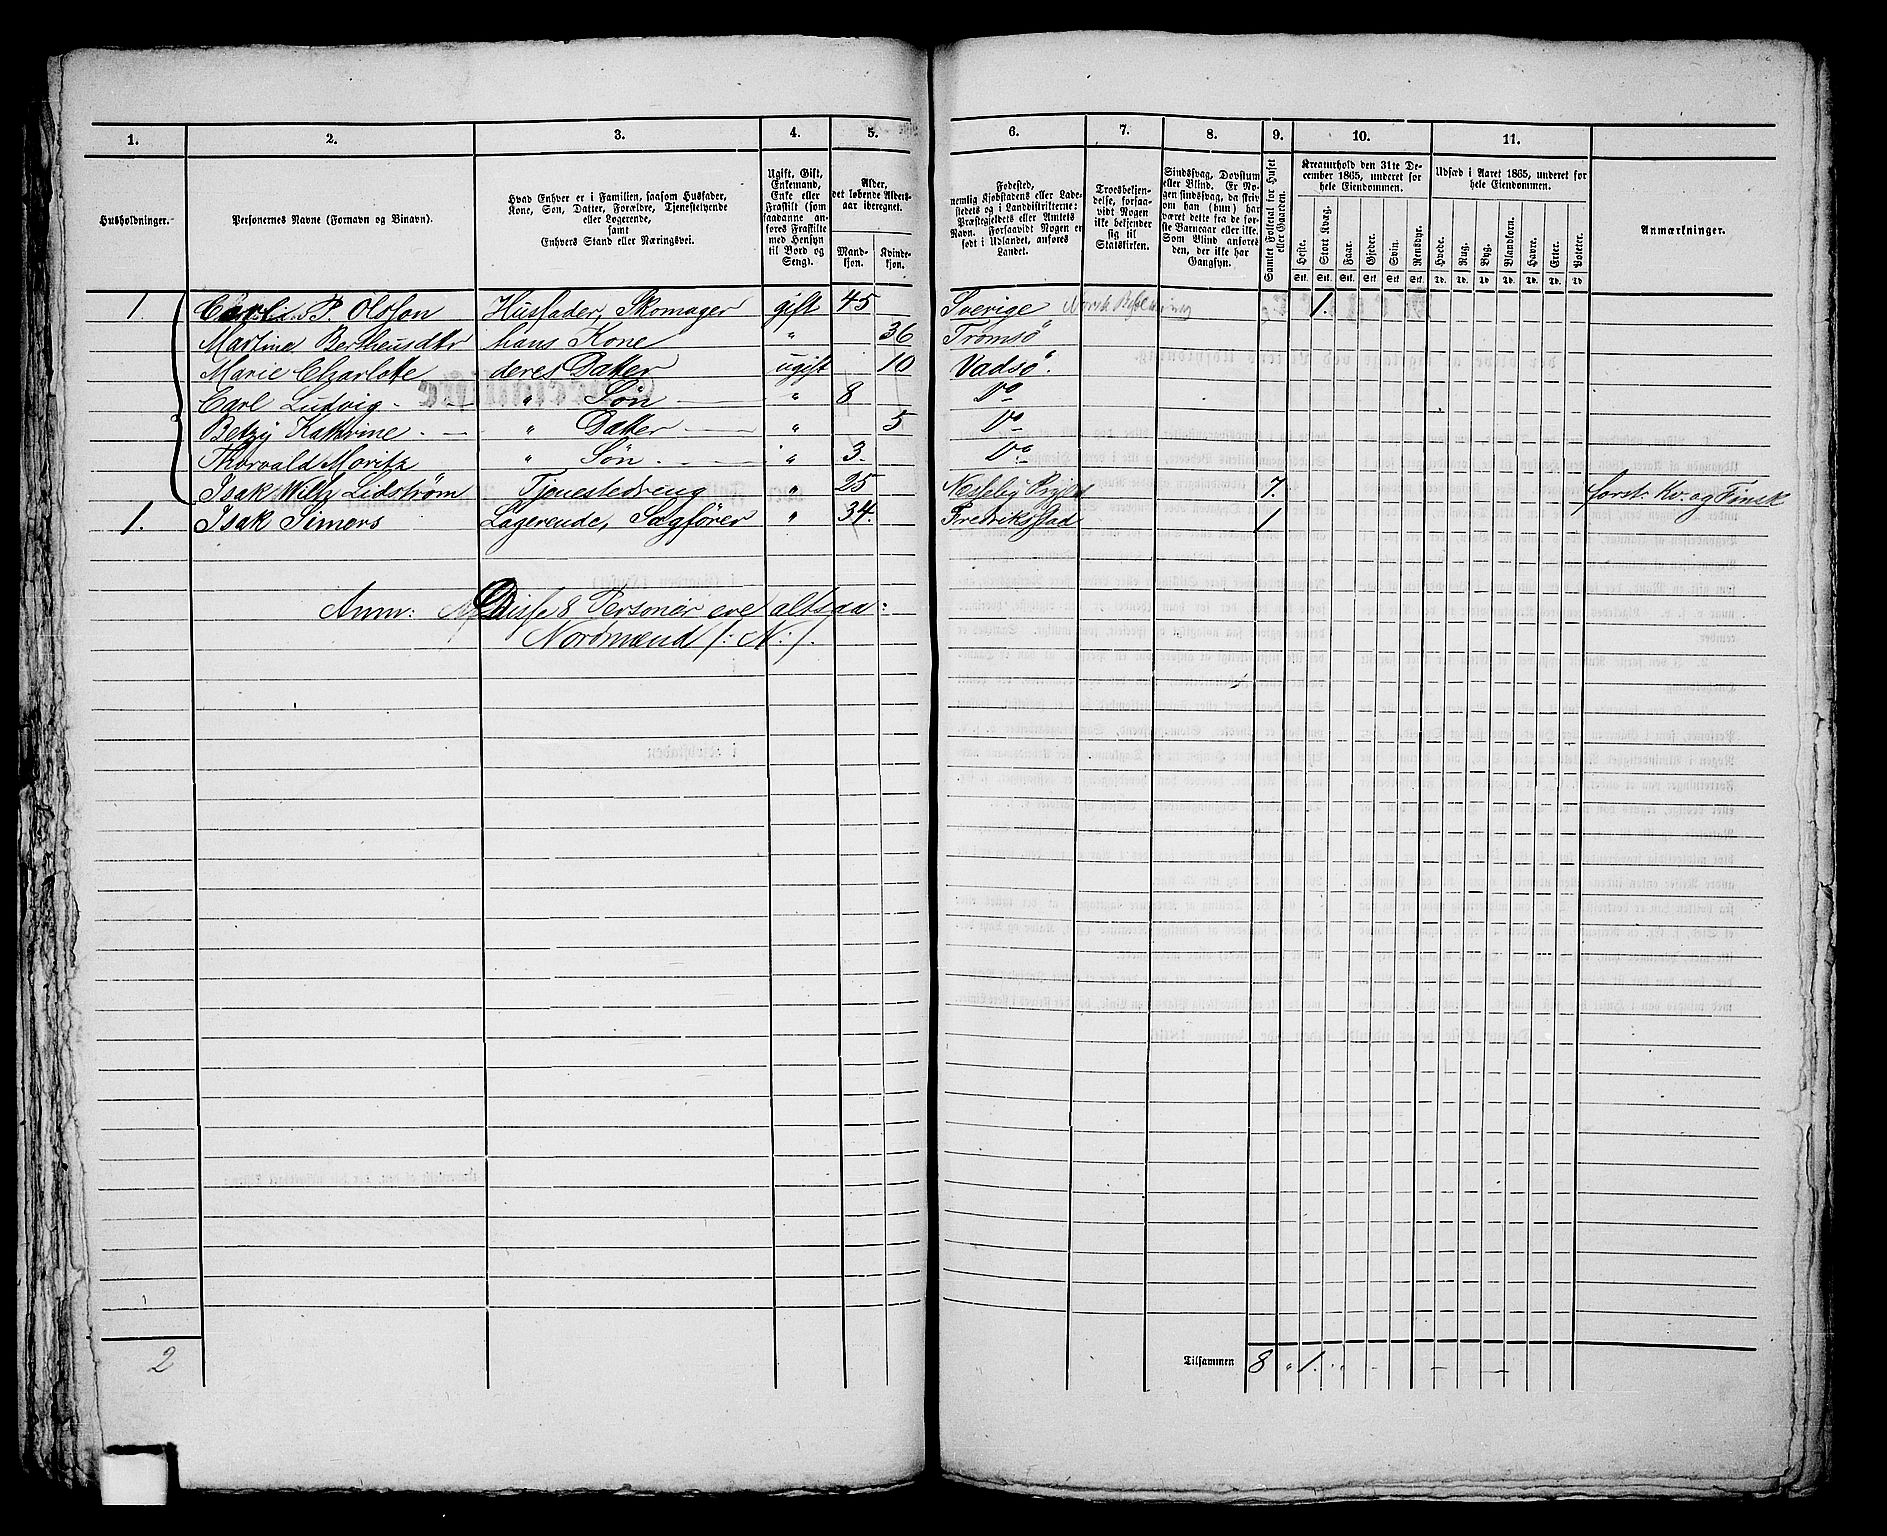 1. 2. 3. 4. 5. 6. 7. 8. 9. 10. 11.
Husholdninger.
Personernes Navne (Fornavn og Binavn).
Hvad Enhver er i Familien, saasom Husfader,
Kone, Søn, Datter, Forældre, Tjenestetyende
eller Logerende,
samt
Enhvers Stand eller Næringsvei.
Ugift, Gift,
Enkemand,
Enke eller
Fraskilt (som
saadanne an-
føres Fraskilte
med Hensyn
til Bord og
Seng).
Alder,
det løbende Alders-
aar iberegnet.
Mand-
kjøn.
Kvinde-
kjøn.
Fødested,
nemlig Kjøbstadens eller Lade-
stedets og i Landdistrikterne:
Præstegjeldets eller Amtets
Navn. Forsaavidt Nogen er
født i Udlandet, anføres
Landet.
Troesbekjen-
delse, forsaa-
vidt Nogen
ikke bekjender
sig til
Statskirken.
Sindssvag, Døvstum
eller Blind. Er No-
gen sindssvag, da skriv
om han (hun) har
været dette fra de før-
ste Barneaar eller ikke.
Som Blind anføres
den, der ikke har
Gangsyn.
Samlet Folketal for Huset
eller Gaarden.
Kreaturhold den 31te De-
cember 1865, underet for
hele Eiendommen.
Heste. Stort Kvæg. Faar. Gjeder. Svin. Rensdyr.
Stk. Stk. Stk. Stk. Stk. Stk.
Udsæd i Aaret 1865, underet for
hele Eiendommen.
Hvede. Rug. Byg. Blandkorn. Havre. Erter. Poteter.
Td. Td. Td. Td. Td. Td. Td.
Anmærkninger.
1. Carl P. Olsson Husfader, Skomager gift 45 Sverige Norsk 1.
Martine Bertheusdtr hans Kone " 36 Tromsö
Marie Charlotte deres Datter ugift 10 Vadsö.
Carl Ludvig " Søn " 8 Do
Betzy Kathrine " Datter " 5 Do
Thorvald Moritz " Søn " 3 Do
Isak Wilh. Lidstrøm Tjenestedreng " 25 Nesseby 7. forst. Kv. og Finsk
1. Isak Simers Logerende, Sagfører " 34. Fredriksstad 1
Anm: Disse 8 Personer ere altsaa:
Nordmænd /: N :/.
2
Tilsammen 8 " 1.